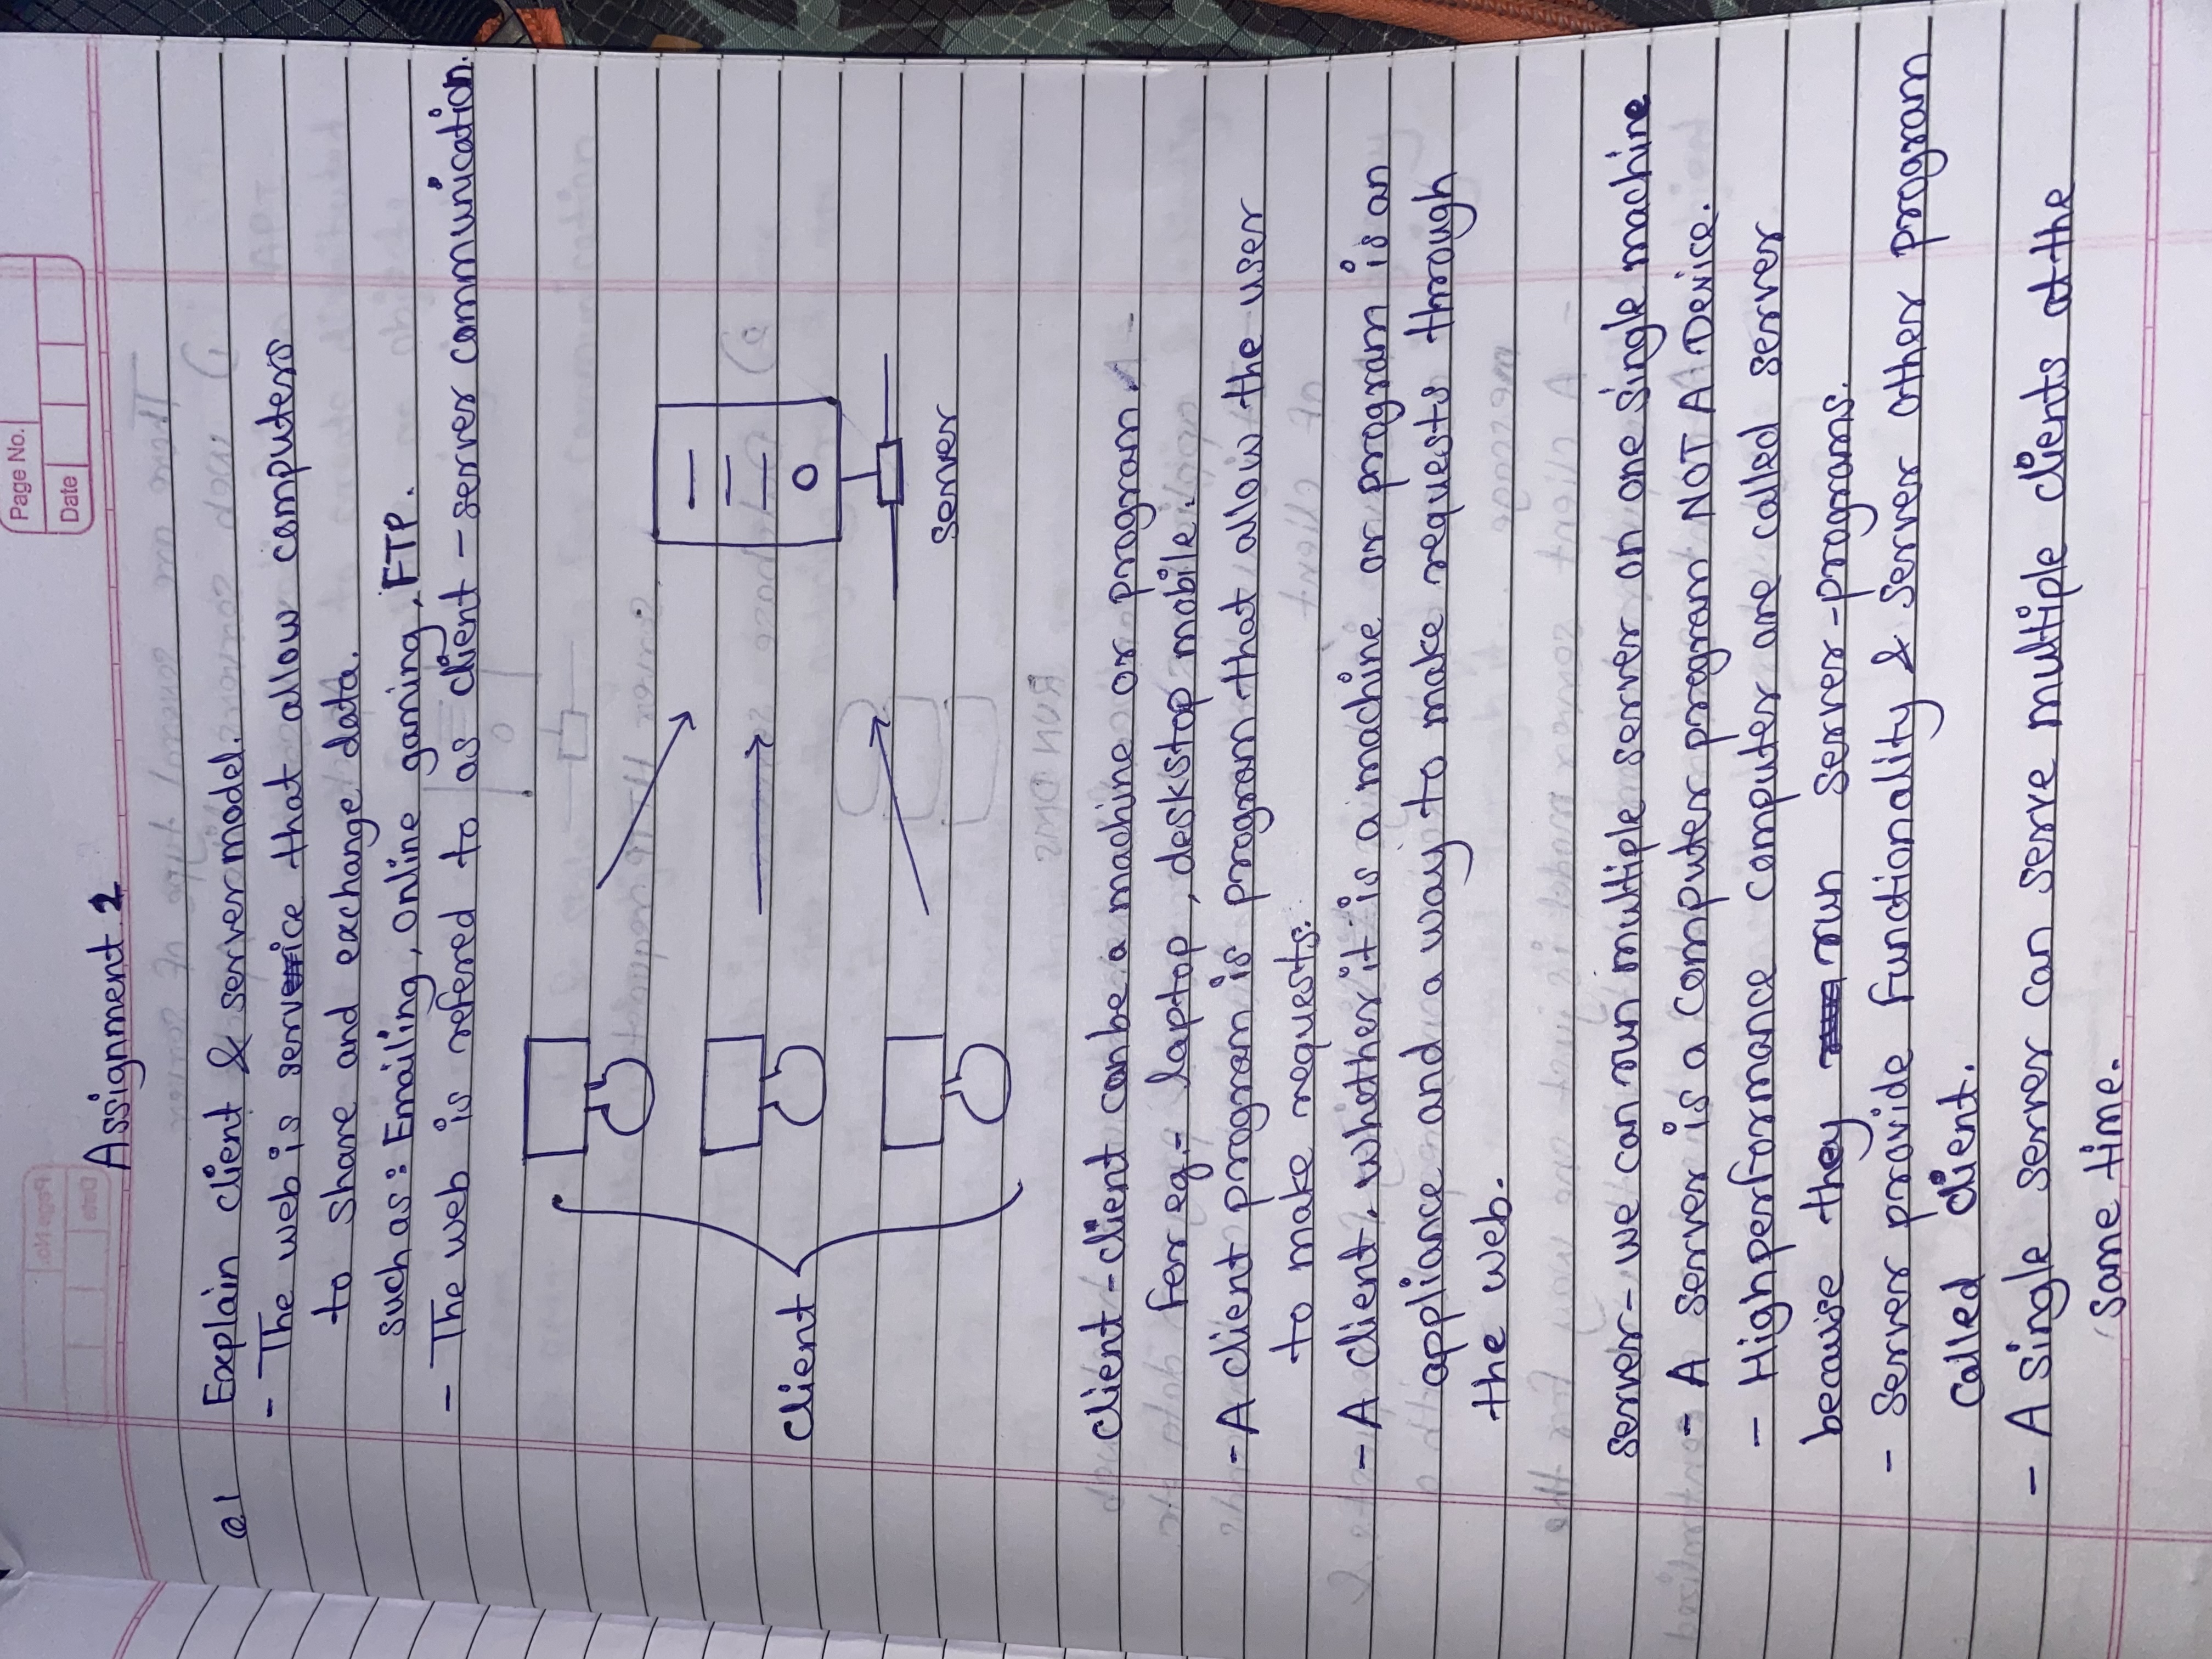 Page No.
Date
Assignment 2
Q1 Explain client & server model.
- The web is service that allow computers
to share and exchange data.
such as: Emailing, Online gaming, FTP.
- The web is refered to as client - server communication.
client
server
client - client can be a machine or program.
For eg.- laptop, deskstop mobile.
- A client program is program that allow the user
to make requests.
- A client, whether it is a machine or program is an
appliance and a way to make requests through
the web.
server - we can run multiple server on one single machine
- A server is a computer program NOT A Device.
- High performance computer are called server
because they run server-programs.
- Server provide functionality & server other program
called client.
- A single server can serve multiple clients at the
same time.